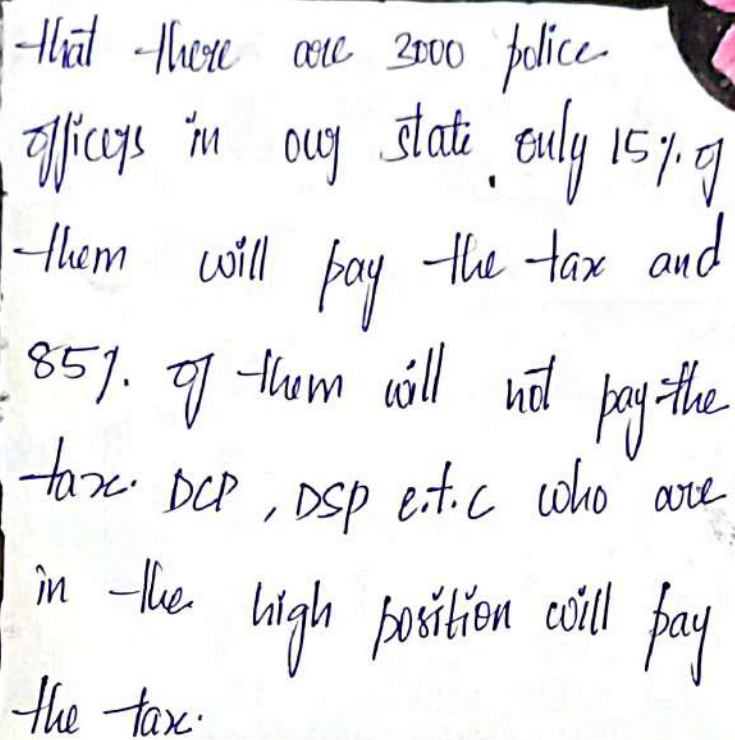 that there are 3000 police
officers in our state. only 15% of
them will pay the tax and
85%. of them will not pay the
tax. DCP, DSP e.t.c who are
in the high position will pay
the tax.